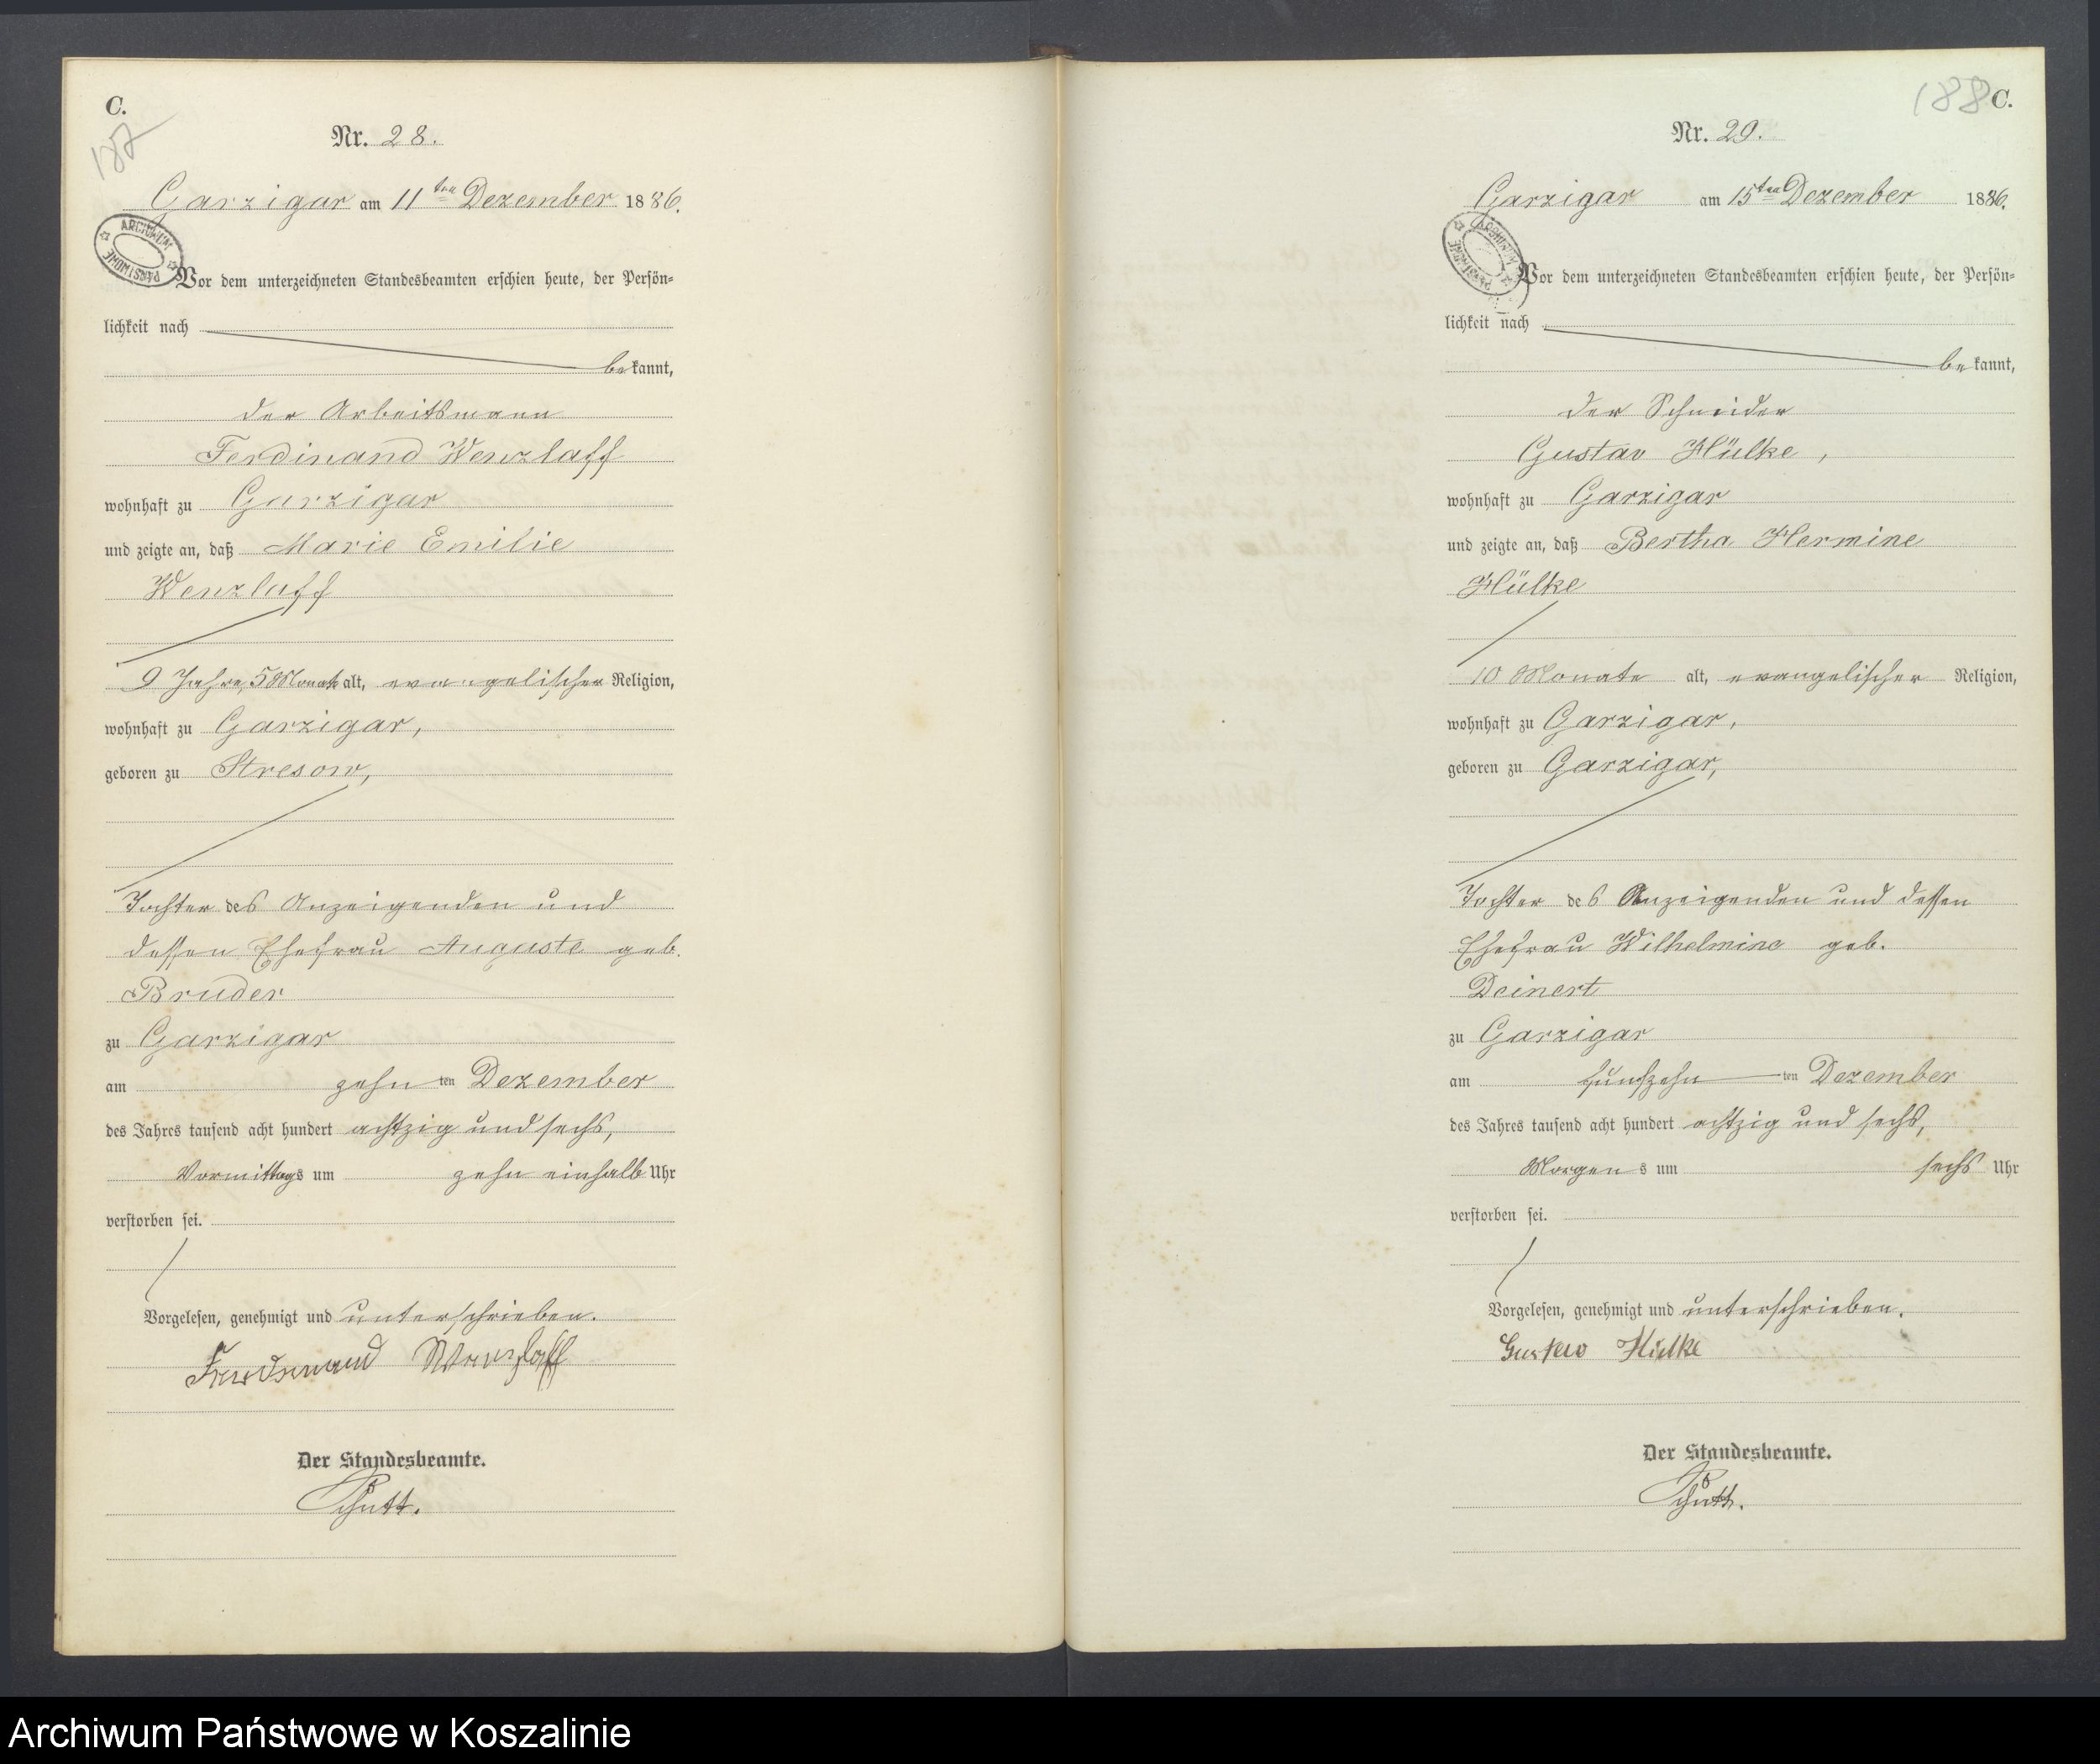 C.
187
Nr. 28.
Garzigar am 11ten Dezember 1886.
ARCHIWUM PAŃSTWOWE
Vor dem unterzeichneten Standesbeamten erschien heute, der Persön-
lichkeit nach
bekannt,
der Arbeitsmann
Ferdinand Wenzlaff
wohnhaft zu Garzigar
und zeigte an, daß Marie Emilie
Wenzlaff
9 Jahre, 5 Monate alt, evangelischer Religion,
wohnhaft zu Garzigar,
geboren zu Stresow,
Tochter des Anzeigenden und
dessen Ehefrau Auguste geb.
Bruder
zu Garzigar
am zehnten Dezember
des Jahres tausend acht hundert achtzig und sechs,
Vormittags um zehn einhalb Uhr
verstorben sei.
Vorgelesen, genehmigt und unterschrieben.
Ferdinand Wenzlaff
Der Standesbeamte.
Schutt.
188 C.
Nr. 29.
Garzigar am 15ten Dezember 1886.
ARCHIWUM PAŃSTWOWE
Vor dem unterzeichneten Standesbeamten erschien heute, der Persön-
lichkeit nach
bekannt,
der Schneider
Gustav Hülke,
wohnhaft zu Garzigar
und zeigte an, daß Bertha Hermine
Hülke
10 Monate alt, evangelischer Religion,
wohnhaft zu Garzigar,
geboren zu Garzigar,
Tochter des Anzeigenden und dessen
Ehefrau Wilhelmine geb.
Deinert
zu Garzigar
am fünfzehnten Dezember
des Jahres tausend acht hundert achtzig und sechs,
Morgens um sechs Uhr
verstorben sei.
Vorgelesen, genehmigt und unterschrieben.
Gustav Hülke
Der Standesbeamte.
Schutt.
Archiwum Państwowe w Koszalinie